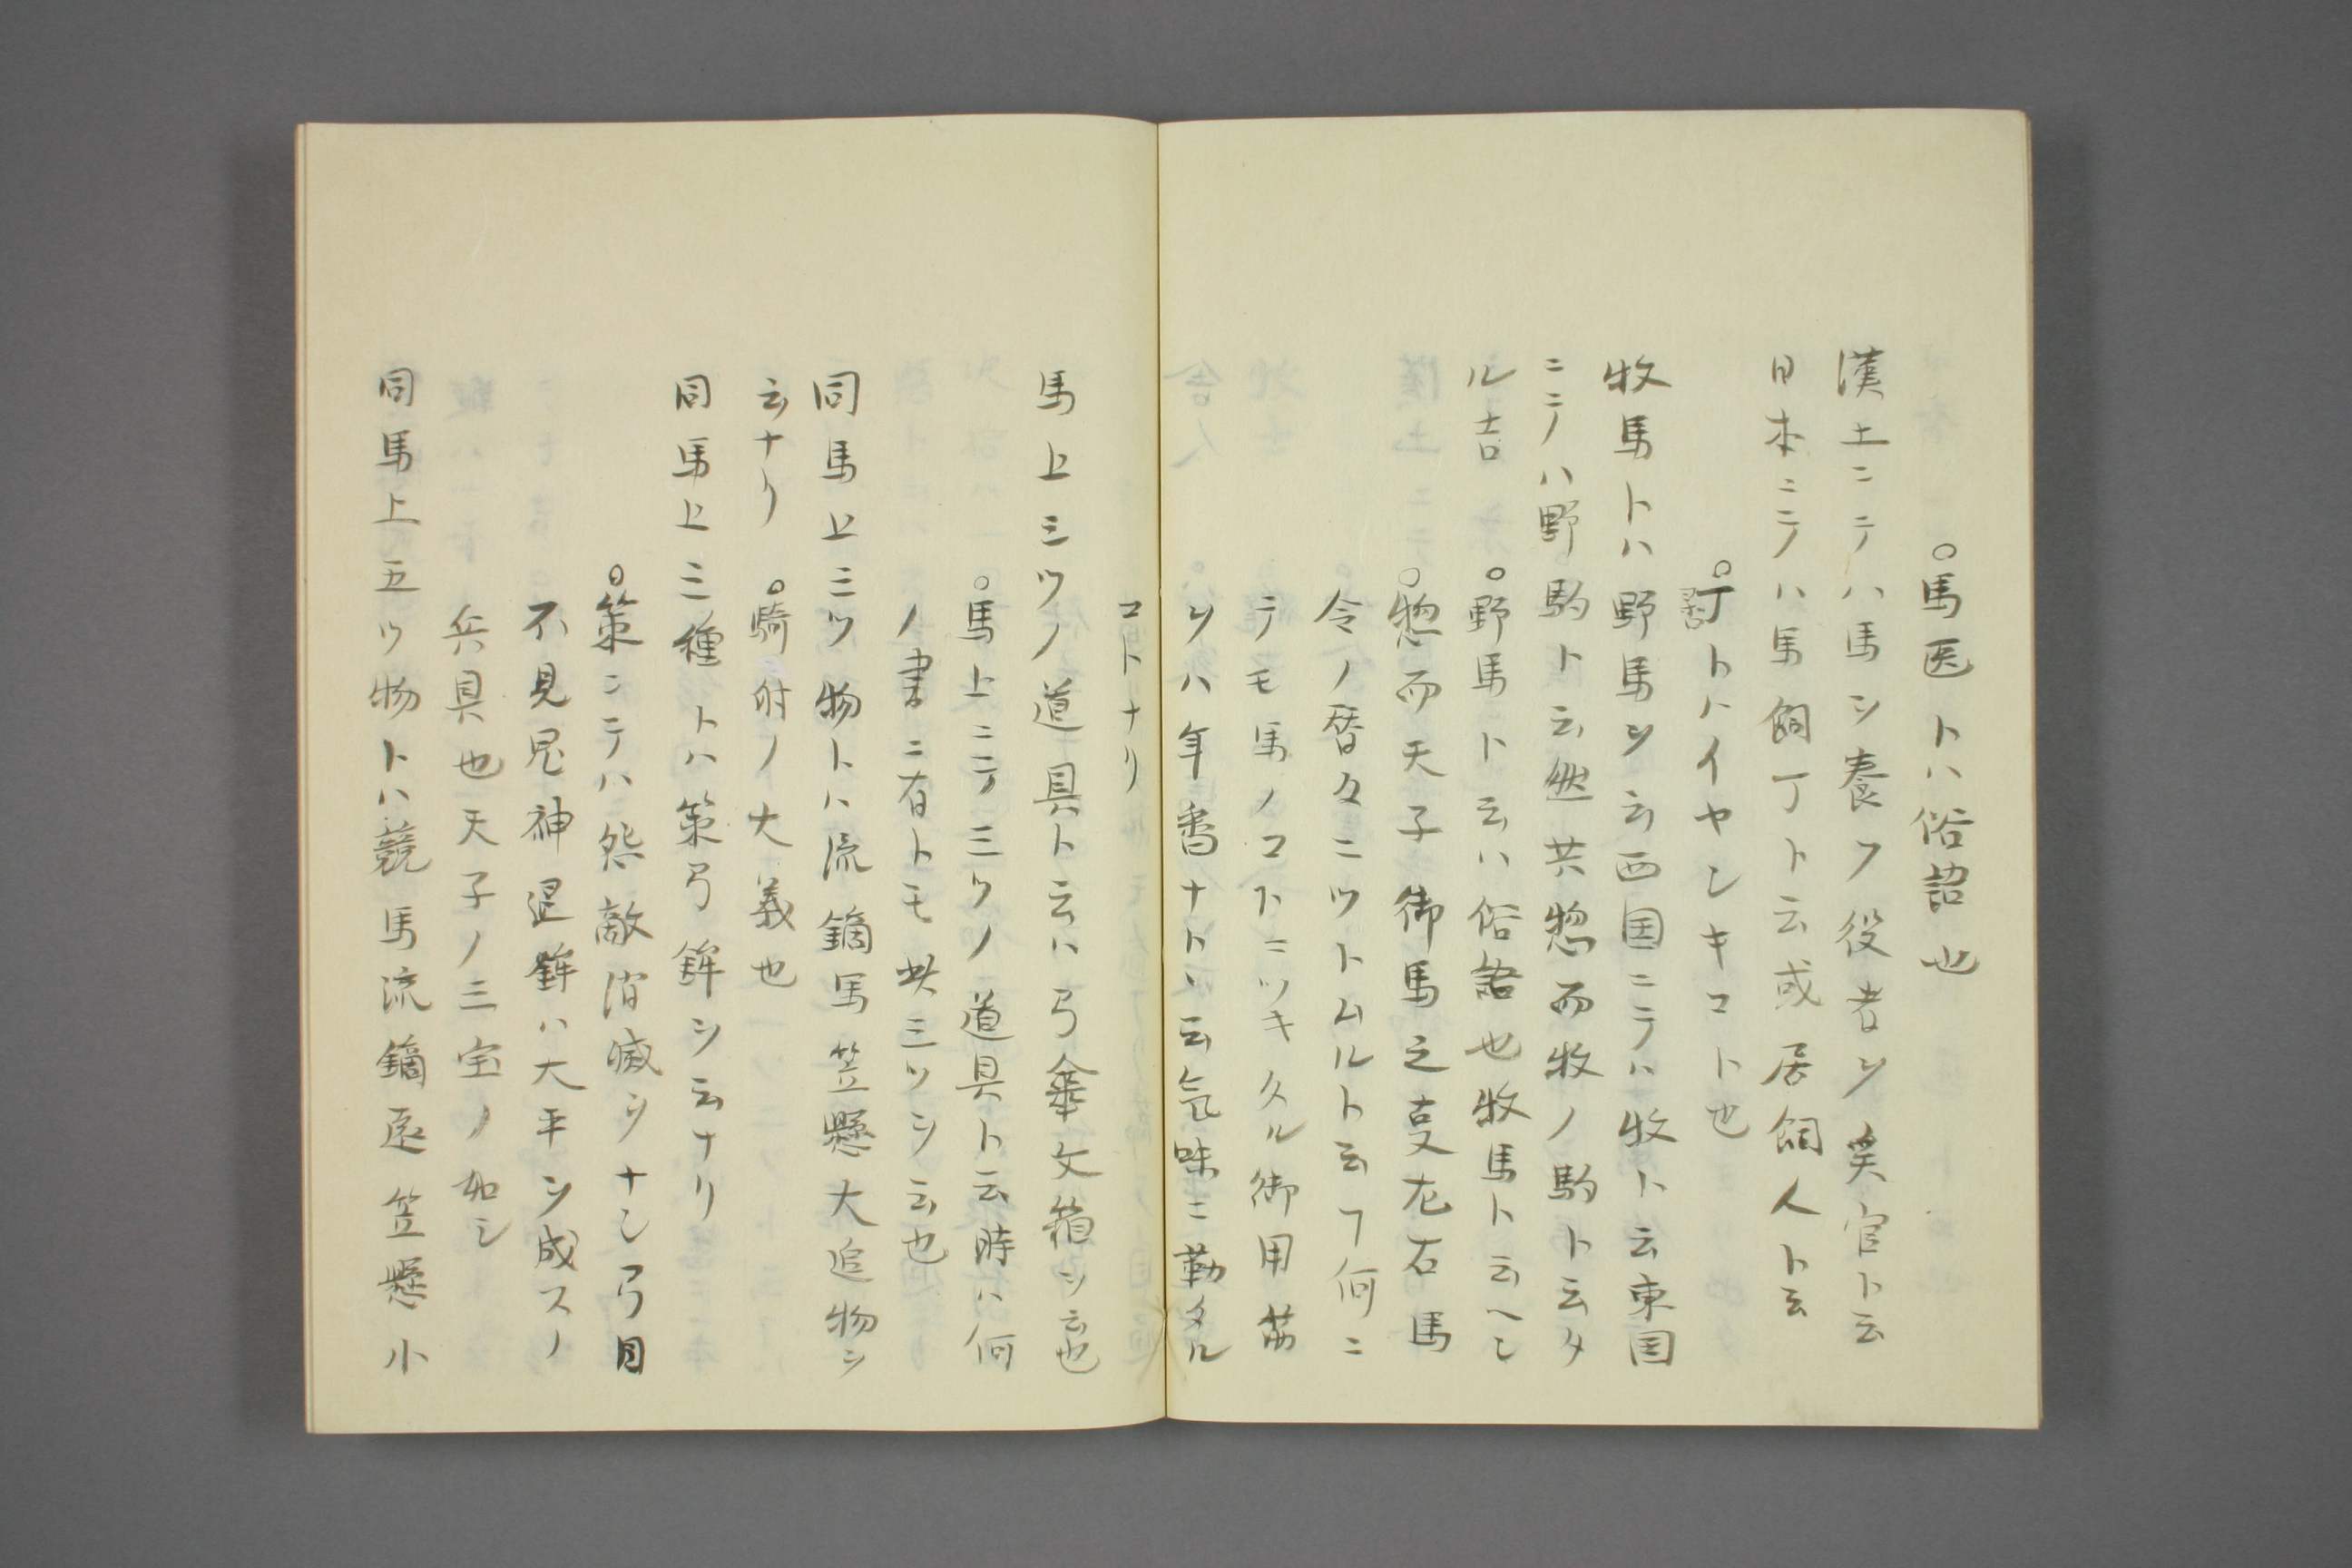 ○馬医トハ俗語也
漢土ニテハ馬ヲ養フ役者ヲ奚官ト云
日本ニテハ馬飼丁ト云或居飼人ト云
○丁トハイヤシキコト也
牧馬トハ野馬ヲ云西国ニテハ牧ト云東国
ニテハ野駒ト云然共惣而牧ノ駒ト云タ
ル吉　○野馬ト云ハ俗語也牧馬ト云ヘシ
○惣而天子御馬之㕝左右馬
令ノ暦々ニツトムルト云フ何ニ
テモ馬ノコトニツキタル御用筋
ヲハ年番ナトヽ云気味ニ勤タル
コトナリ
馬上三ツノ道具ト云ハ弓傘文箱ヲ云也
○馬上ニテ三ツノ道具ト云時ハ何
ノ書ニ有トモ此三ツヲ云也
同馬上三ツ物トハ流鏑馬笠懸犬追物ヲ
云ナリ　○騎射ノ大義也
同馬上三種トハ策弓鉾ヲ云ナリ
○策ニテハ怨敵消滅ヲナシ弓目
不見鬼神退鉾ハ大平ヲ成スノ
兵具也天子ノ三宝ノ如シ
同馬上五ツ物トハ競馬流鏑遠笠懸小